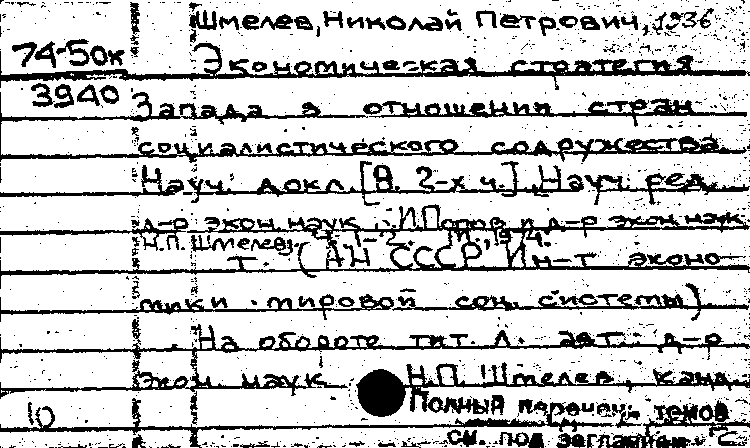 Шмелев, Николай Петрович, 1936
74-50к
3940
Экономическая стратегия
Запада в отношении стран
социалистического содружества.
Науч. докл. [В. 2-х ч.]. Науч. ред.
д-р экон. наук И. Попов и д-р экон. наук
Н.П. Шмелев.
Ч. 1-2. М., 1974.
т. (АН СССР. Ин-т эконо-
мики мировой соц. системы)
На обороте тит. л. авт.: д-р
экон. наук Н.П. Шмелев, канд.
10
Полный перечень
см. под заглавием